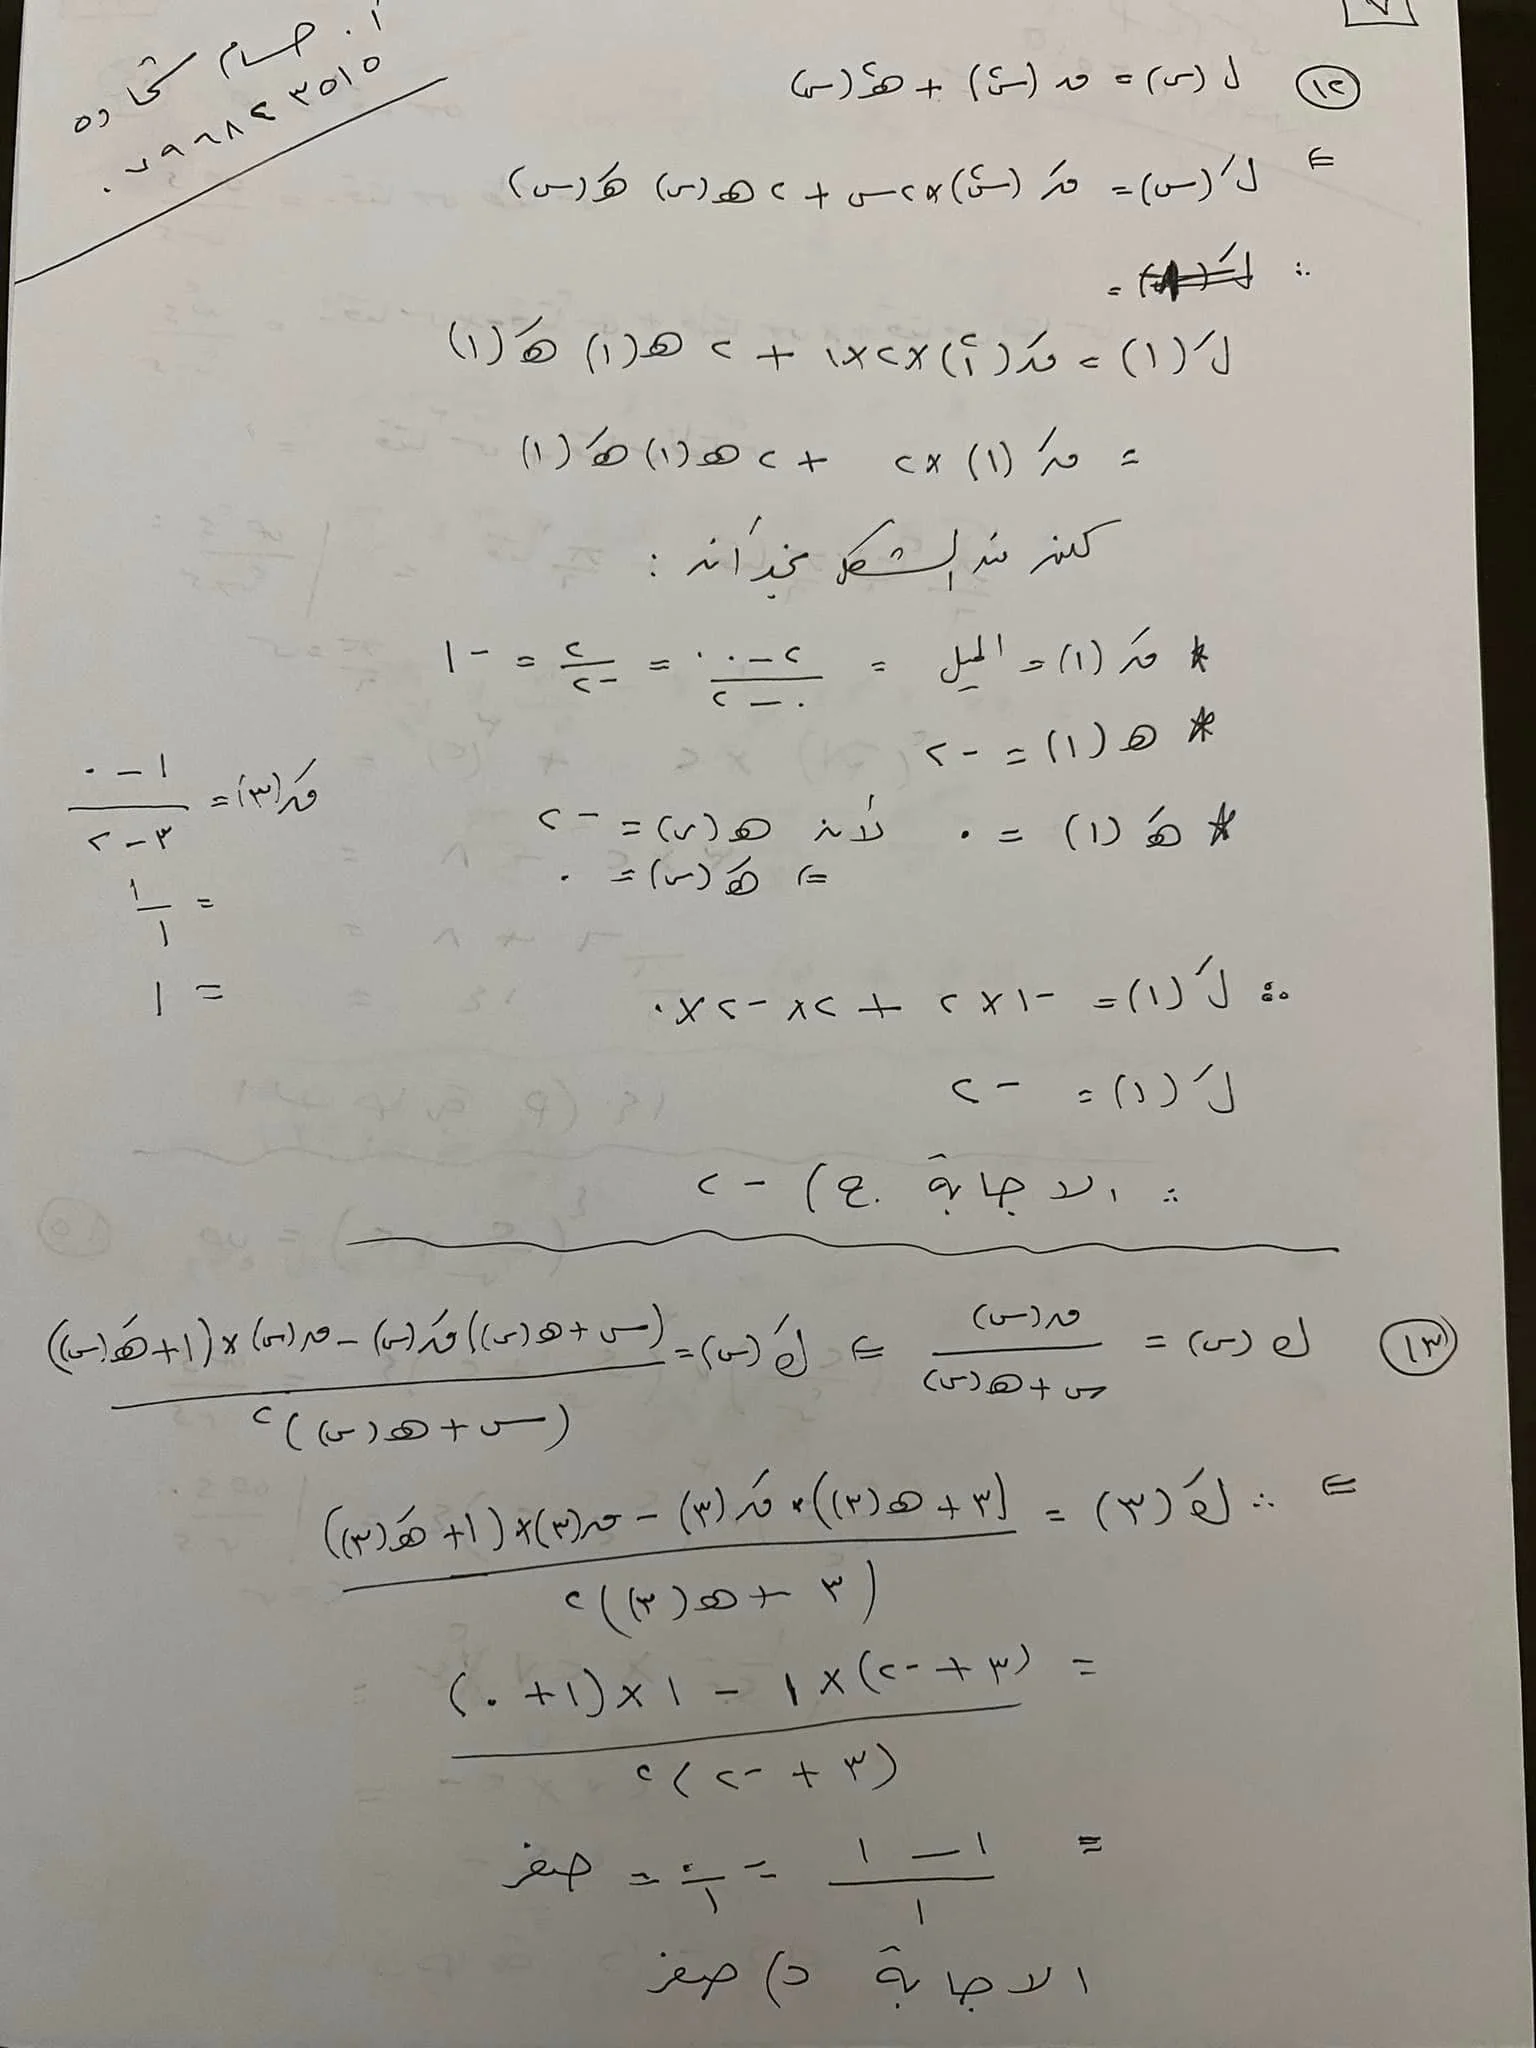 أ. حسام شحاده
٠٧٩٦٨٢٣٥١٥
١٢ ل(س) = ق(س²) + هـ²(س)
⇐ لَ(س) = قَ(س²)×٢س + ٢هـ(س) هـَ(س)
∴
لَ(١) = قَ(١²)×٢×١ + ٢هـ(١) هـَ(١)
= قَ(١)×٢ + ٢هـ(١)هـَ(١)
لكن من الشكل نجد أن :
* قَ(١) = الميل = (٢-٠)/(٠-٢) = ٢/-٢ = -١
* هـ(١) = -٢
* هـَ(١) = ٠ لأن هـ(س) = -٢
⇐ هـَ(س) = ٠
قَ(٣) = (١-٠)/(٣-٢)
= ١/١
= ١
∴ لَ(١) = -١×٢ + ٢×-٢×٠
لَ(١) = -٢
∴ الاجابة ج) -٢
١٣ ك(س) = ق(س)/(س+هـ(س)) ⇐ كَ(س) = ((س+هـ(س))قَ(س) - ق(س)×(١+هـَ(س)))/(س+هـ(س))²
⇐ ∴ كَ(٣) = ((٣+هـ(٣))×قَ(٣) - ق(٣)×(١+هـَ(٣)))/(٣+هـ(٣))²
= ((٣+-٢)×١ - ١×(١+٠))/(٣+-٢)²
= (١-١)/١ = ٠/١ = صفر
الاجابة د) صفر